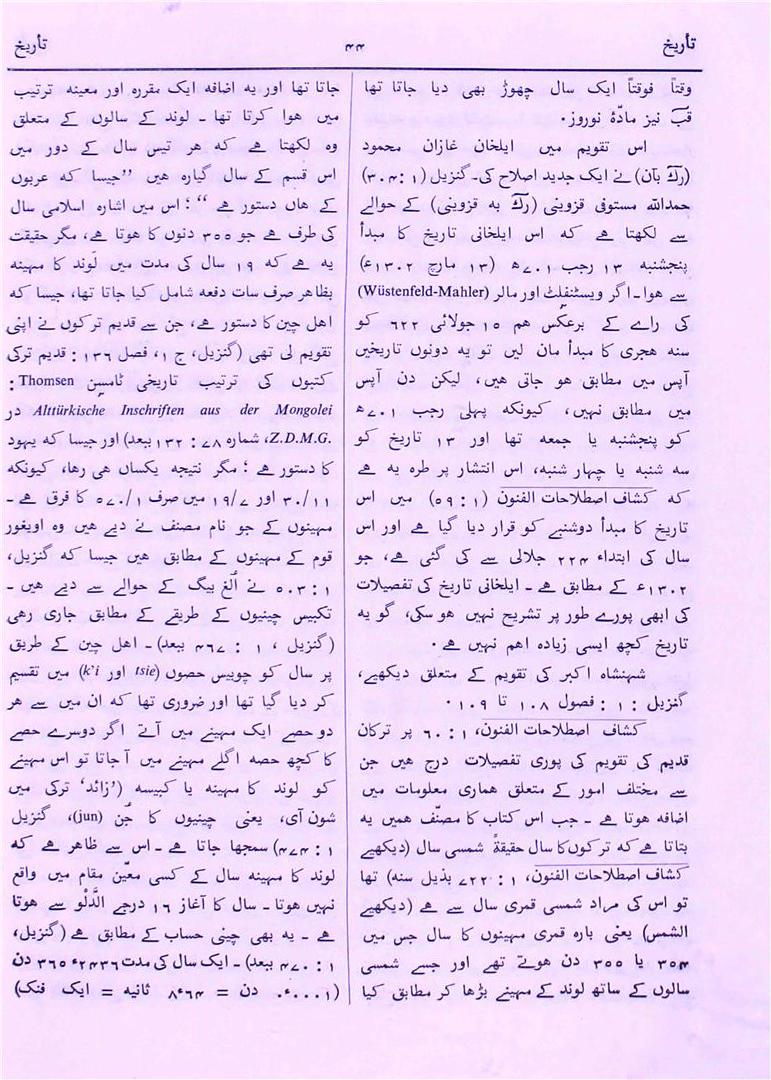 تأریخ ۴۴ تأریخ
وقتاً فوقتاً ایک سال چھوڑ بھی دیا جاتا تھا
قبَ نیز مادّۂ نوروز.
اس تقویم میں ایلخان غازان محمود
(رکَ بآن) نے ایک جدید اصلاح کی۔ گنزیل (۱ : ۳۰۴)
حمدالله مستوفی قزوینی (رکَ به قزوینی) کے حوالے
سے لکھتا ہے کہ اس ایلخانی تاریخ کا مبدأ
پنجشنبه ۱۳ رجب ۷۰۱ھ (۱۳ مارچ ۱۳۰۲ء)
سے ہوا۔ اگر ویسٹنفلٹ اور مالر (Wüstenfeld-Mahler)
کی رائے کے برعکس ہم ۱۵ جولائی ۶۲۲ کو
سنہ ہجری کا مبدأ مان لیں تو یہ دونوں تاریخیں
آپس میں مطابق ہو جاتی ہیں، لیکن دن آپس
میں مطابق نہیں، کیونکہ پہلی رجب ۷۰۱ھ
کو پنجشنبه یا جمعہ تھا اور ۱۳ تاریخ کو
سه شنبه یا چہار شنبه، اس انتشار پر طرہ یہ ہے
کہ کشاف اصطلاحات الفنون (۱ : ۵۹) میں اس
تاریخ کا مبدأ دوشنبے کو قرار دیا گیا ہے اور اس
سال کی ابتداء ۲۲۴ جلالی سے کی گئی ہے، جو
۱۳۰۲ء کے مطابق ہے۔ ایلخانی تاریخ کی تفصیلات
کی ابھی پورے طور پر تشریح نہیں ہو سکی، گو یہ
تاریخ کچھ ایسی زیادہ اہم نہیں ہے.
شہنشاہ اکبر کی تقویم کے متعلق دیکھیے،
گنزیل : ۱ : فصول ۱۰۸ تا ۱۰۹.
کشاف اصطلاحات الفنون، ۱ : ۶۰ پر ترکان
قدیم کی تقویم کی پوری تفصیلات درج ہیں جن
سے مختلف امور کے متعلق ہماری معلومات میں
اضافہ ہوتا ہے۔ جب اس کتاب کا مصنّف ہمیں یہ
بتاتا ہے کہ ترکوں کا سال حقیقةً شمسی سال (دیکھیے
کشاف اصطلاحات الفنون، ۱ : ۷۲۲ بذیل سنه) تھا
تو اس کی مراد شمسی قمری سال سے ہے (دیکھیے
الشمس) یعنی بارہ قمری مہینوں کا سال جس میں
۳۵۴ یا ۳۵۵ دن ہوتے تھے اور جسے شمسی
سالوں کے ساتھ لوند کے مہینے بڑھا کر مطابق کیا
جاتا تھا اور یہ اضافہ ایک مقررہ اور معینه ترتیب
میں ہوا کرتا تھا۔ لوند کے سالوں کے متعلق
وہ لکھتا ہے کہ ہر تیس سال کے دور میں
اس قسم کے سال گیارہ ہیں ”جیسا کہ عربوں
کے ہاں دستور ہے“؛ اس میں اشارہ اسلامی سال
کی طرف ہے جو ۳۵۵ دنوں کا ہوتا ہے، مگر حقیقت
یہ ہے کہ ۱۹ سال کی مدت میں لَوند کا مہینه
بظاہر صرف سات دفعہ شامل کیا جاتا تھا، جیسا کہ
اہل چین کا دستور ہے، جن سے قدیم ترکوں نے اپنی
تقویم لی تھی (گنزیل، ج ۱، فصل ۱۳۶ : قدیم ترکی
کتبوں کی ترتیب تاریخی ٹامسن Thomsen :
Alttürkische Inschriften aus der Mongolei در
Z.D.M.G.، شمارہ ۷۸ : ۱۳۲ ببعد) اور جیسا کہ یہود
کا دستور ہے؛ مگر نتیجہ یکساں ہی رہا، کیونکہ
۳۰/۱۱ اور ۱۹/۷ میں صرف ۵۷۰/۱ کا فرق ہے۔
مہینوں کے جو نام مصنف نے دیے ہیں وہ اویغور
قوم کے مہینوں کے مطابق ہیں جیسا کہ گنزیل،
۱ : ۵۰۳ نے اُلغ بیگ کے حوالے سے دیے ہیں۔
تکبیس چینیوں کے طریقے کے مطابق جاری رہی
(گنزیل، ۱ : ۴۶۷ ببعد)۔ اہل چین کے طریق
پر سال کو چوبیس حصوں (tsie اور k'i) میں تقسیم
کر دیا گیا تھا اور ضروری تھا کہ ان میں سے ہر
دو حصے ایک مہینے میں آتے اگر دوسرے حصے
کا کچھ حصہ اگلے مہینے میں آ جاتا تو اس مہینے
کو لوند کا مہینه یا کبیسه (’زائد‘ ترکی میں
شون آی، یعنی چینیوں کا جُن (jun)، گنزیل
۱ : ۴۷۴) سمجھا جاتا ہے۔ اس سے ظاہر ہے کہ
لوند کا مہینه سال کے کسی معیّن مقام میں واقع
نہیں ہوتا۔ سال کا آغاز ۱۶ درجے الدَّلْو سے ہوتا
ہے۔ یہ بھی چینی حساب کے مطابق ہے (گنزیل،
۱ : ۴۷۰ ببعد)۔ ایک سال کی مدت ۲۴۳۶ء۳۶۵ دن
(۰۰۰۱ء. دن = ۶۴ء۸ ثانیه = ایک فنک)